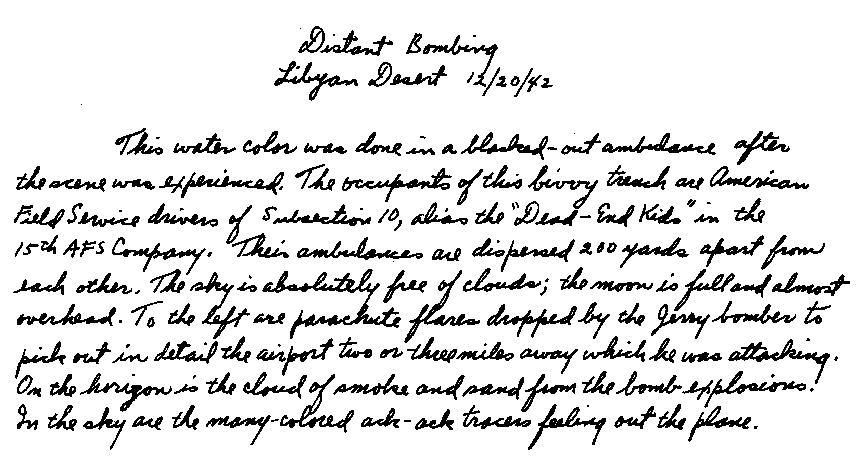 Distant Bombing
Libyan Desert 12/20/42
This water color was done in a blacked-out ambulance after
the scene was experienced. The occupants of this bivvy trench are American
Field Service drivers of Subsection 10, alias the "Dead-End Kids" in the
15th AFS Company. Their ambulances are dispersed 200 yards apart from
each other. The sky is absolutely free of clouds; the moon is full and almost
overhead. To the left are parachute flares dropped by the Jerry bomber to
pick out in detail the airport two or three miles away which he was attacking.
On the horizon is the cloud of smoke and sand from the bomb explosions.
In the sky are the many-colored ack-ack tracers feeling out the plane.